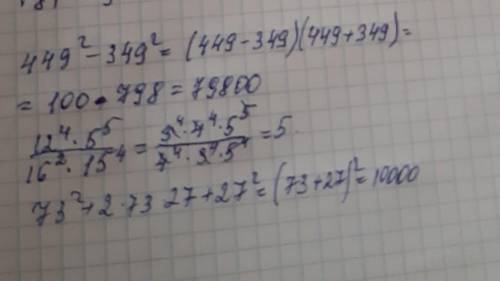 449² - 349² = (449 - 349)(449 + 349) =
= 100 • 798 = 79800
12⁴ · 5⁵ / 16² · 15⁴ = 3⁴ · 4⁴ · 5⁵ / 4⁴ · 3⁴ · 5⁴ = 5.
73² + 2 · 73 · 27 + 27² = (73 + 27)² = 10000